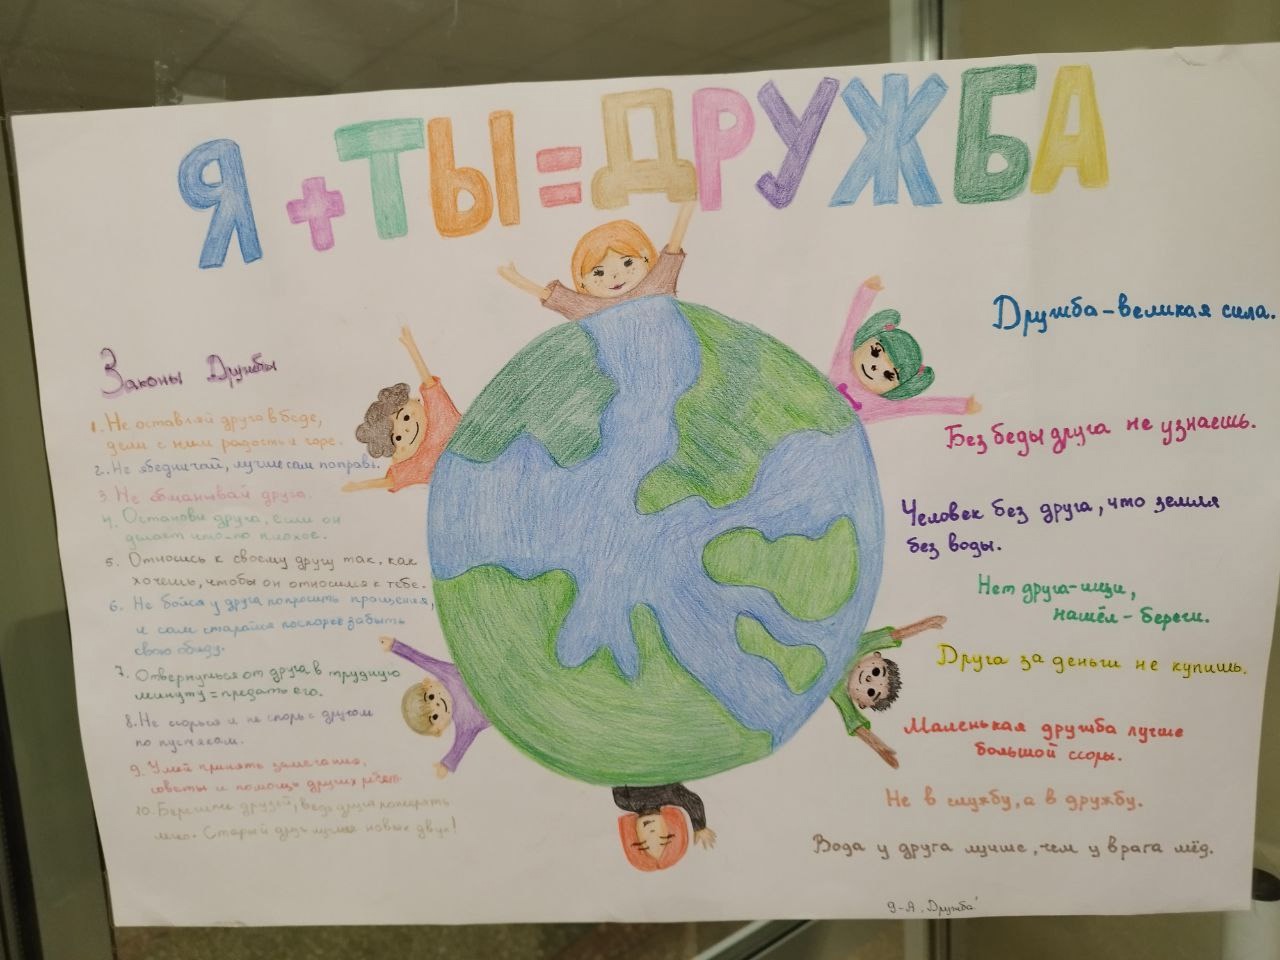 Я + ТЫ = ДРУЖБА
Законы Дружбы
1. Не оставляй друга в беде,
дели с ним радость и горе.
2. Не ябедничай, лучше сам поправь.
3. Не обманывай друга.
4. Останови друга, если он
делает что-то плохое.
5. Относись к своему другу так, как
хочешь, чтобы он относился к тебе.
6. Не бойся у друга попросить прощения,
и сам старайся поскорее забыть
свою обиду.
7. Отвернуться от друга в трудную
минуту = предать его.
8. Не ссорься и не спорь с другом
по пустякам.
9. Умей принять замечания,
советы и помощь других ребят
10. Берегите друзей, ведь друга потерять
легко. Старый друг лучше новых двух!
Дружба – великая сила.
Без беды друга не узнаешь.
Человек без друга, что земля
без воды.
Нет друга – ищи,
нашёл – береги.
Друга за деньги не купишь.
Маленькая дружба лучше
большой ссоры.
Не в службу, а в дружбу.
Вода у друга лучше, чем у врага мёд.
9-А „Дружба"